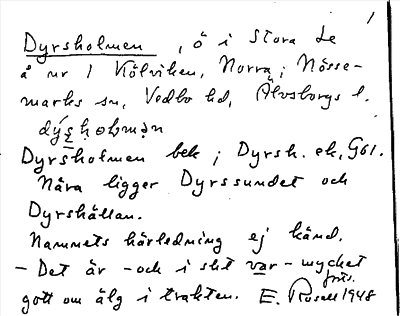 1
Dyrsholmen, ö i Stora Le
å nr 1 Kölviken, Norra; Nösse-
marks sn, Vedbo hd, Älvsborgs l.
Dyrsholmen bek; Dyrsh. ek, G61.
Nära ligger Dyrssundet och
Dyrshällan.
Namnets härledning ej känd.
- Det är - och i sht var - mycket
gott om älg i trakten. E. Rosell 1948